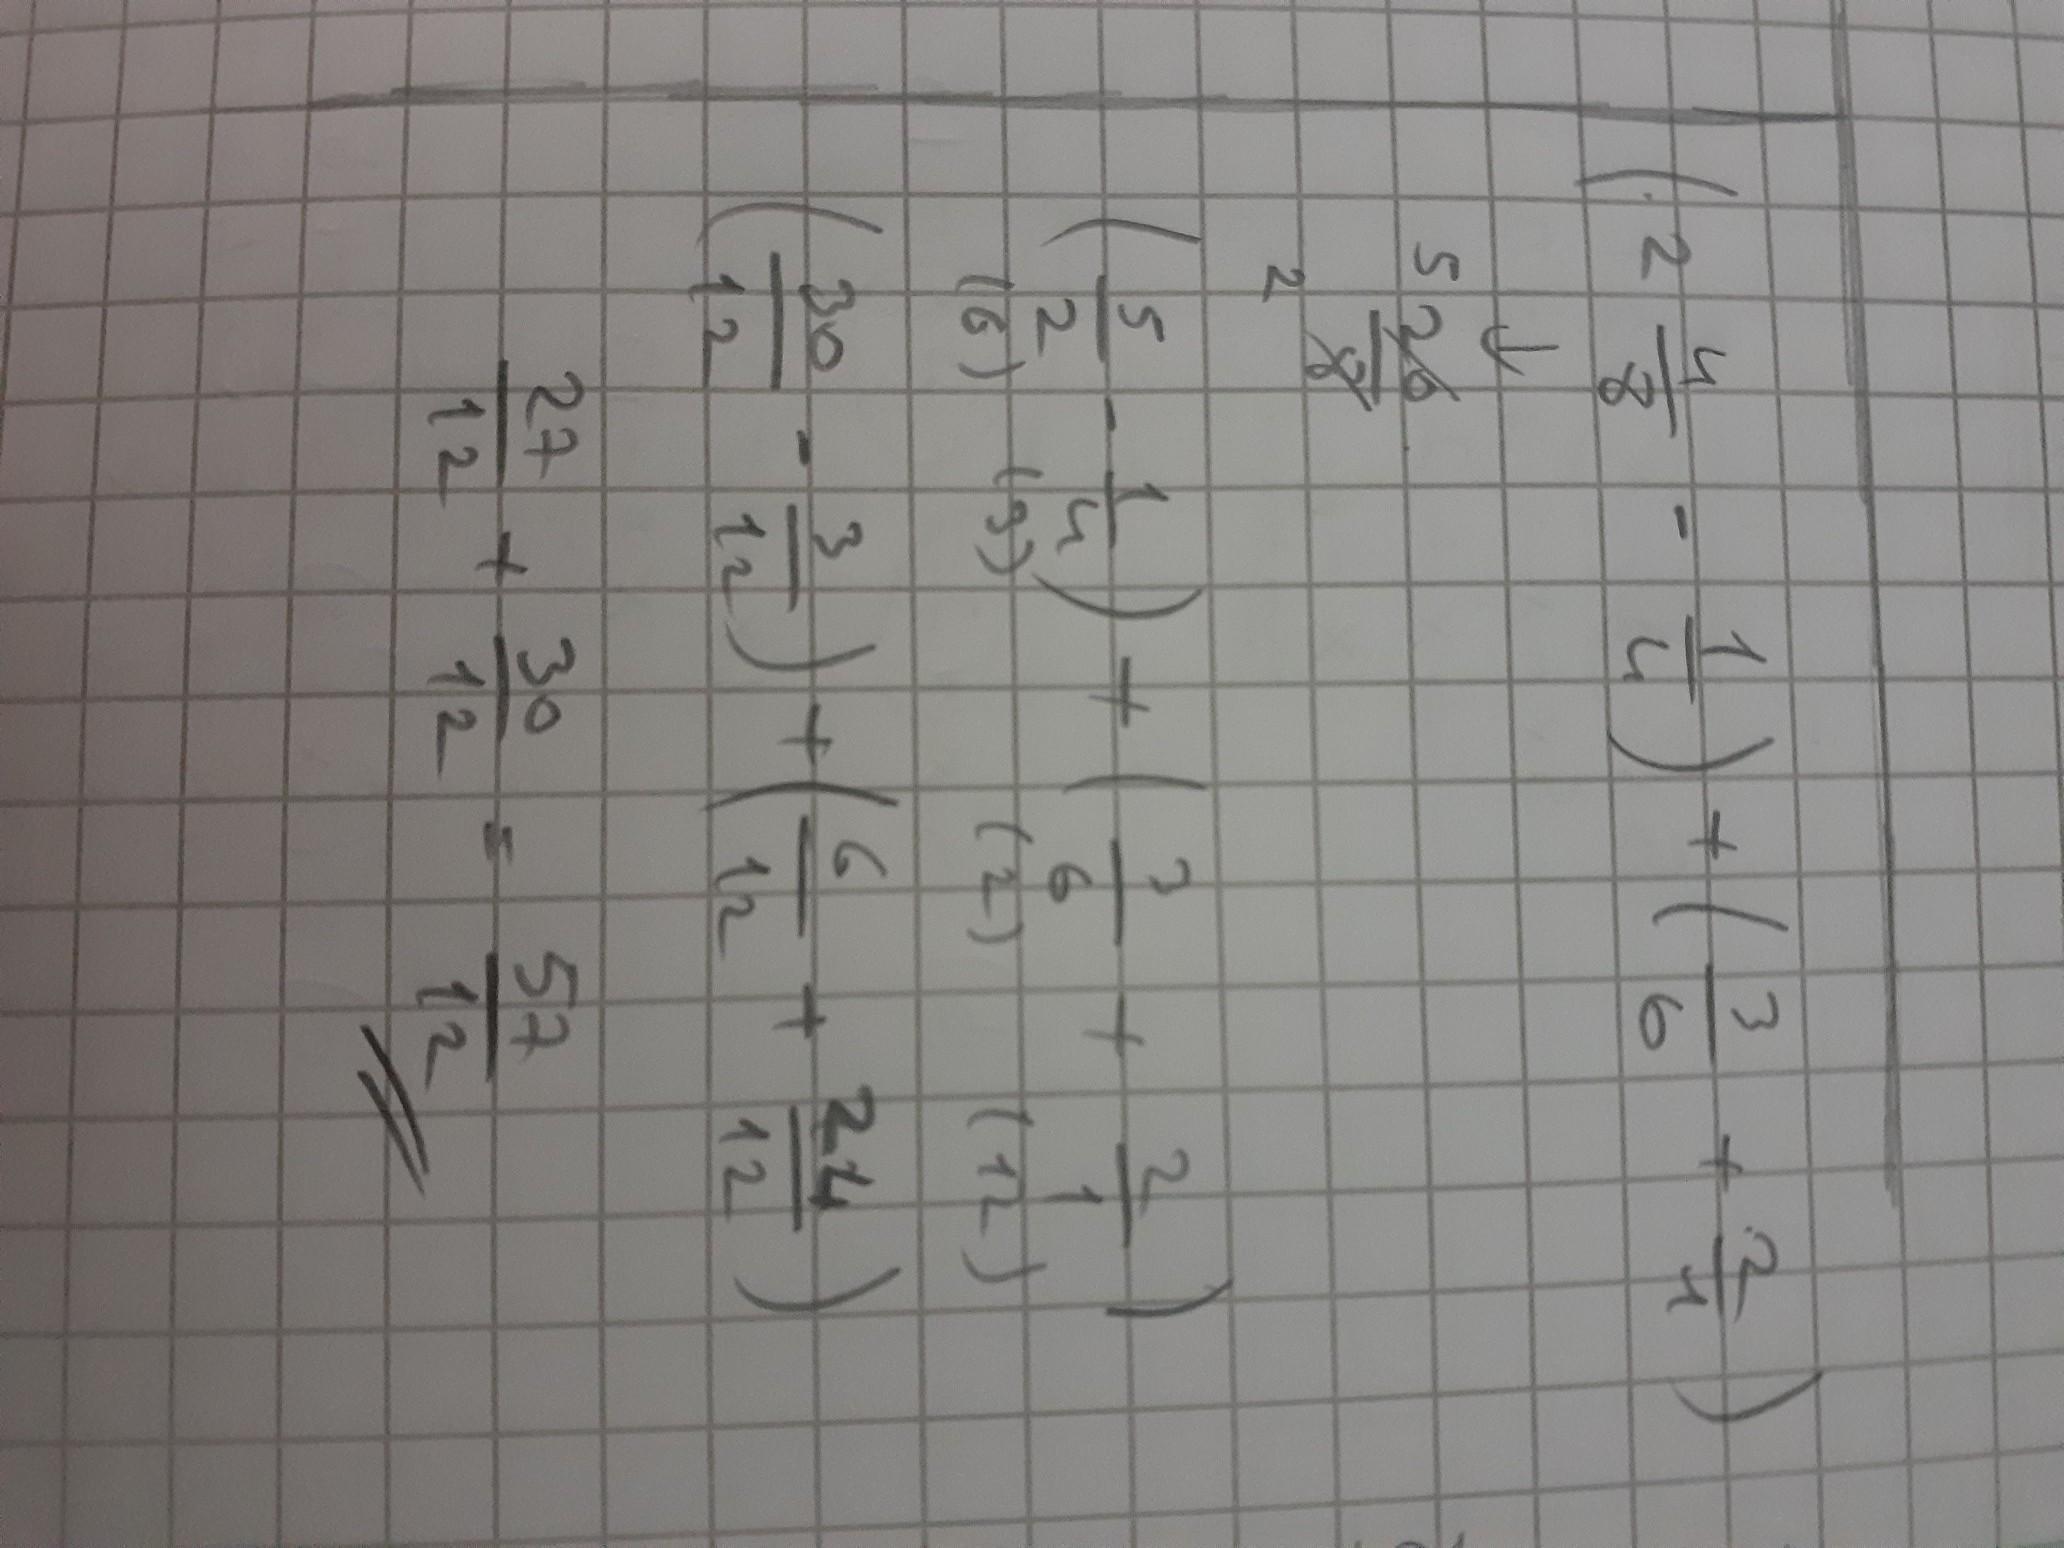 ( 2 4/8 - 1/4 ) + ( 3/6 + 2/1 )
↓
5 20/8 2
( 5/2 - 1/4 ) + ( 3/6 + 2/1 )
(6) (3) (2) (12)
( 30/12 - 3/12 ) + ( 6/12 + 24/12 )
27/12 + 30/12 = 57/12